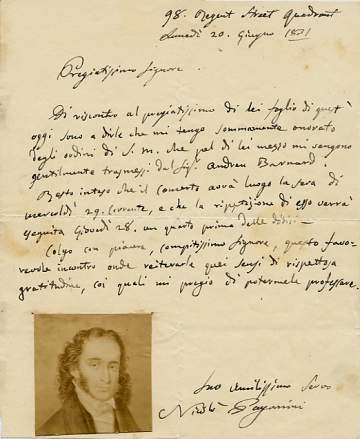 98. Regent Street Quadrant
Lunedì 20. Giugno 1831
Pregiatissimo Signore.
Di riscontro al pregiatissimo di lei foglio di quest'
oggi sono a dirle che mi tengo sommamente onorato
degli ordini di S. M. che pel di lei mezzo mi vengono
gentilmente trasmessi dal Sig.r Andrea Barnard.
Resto inteso che il concerto avrà luogo la sera di
mercoldì 29. Corrente, e che la ripetizione di esso verrà
eseguita Giovedì 28. un quarto prima delle dodici.
Colgo con piacere, compitissimo Signore, questo favo-
revole incontro onde reiterarle quei sensi di rispettosa
gratitudine, coi quali mi pregio di potermele professare.
Suo umilissimo Servo
Nicolò Paganini